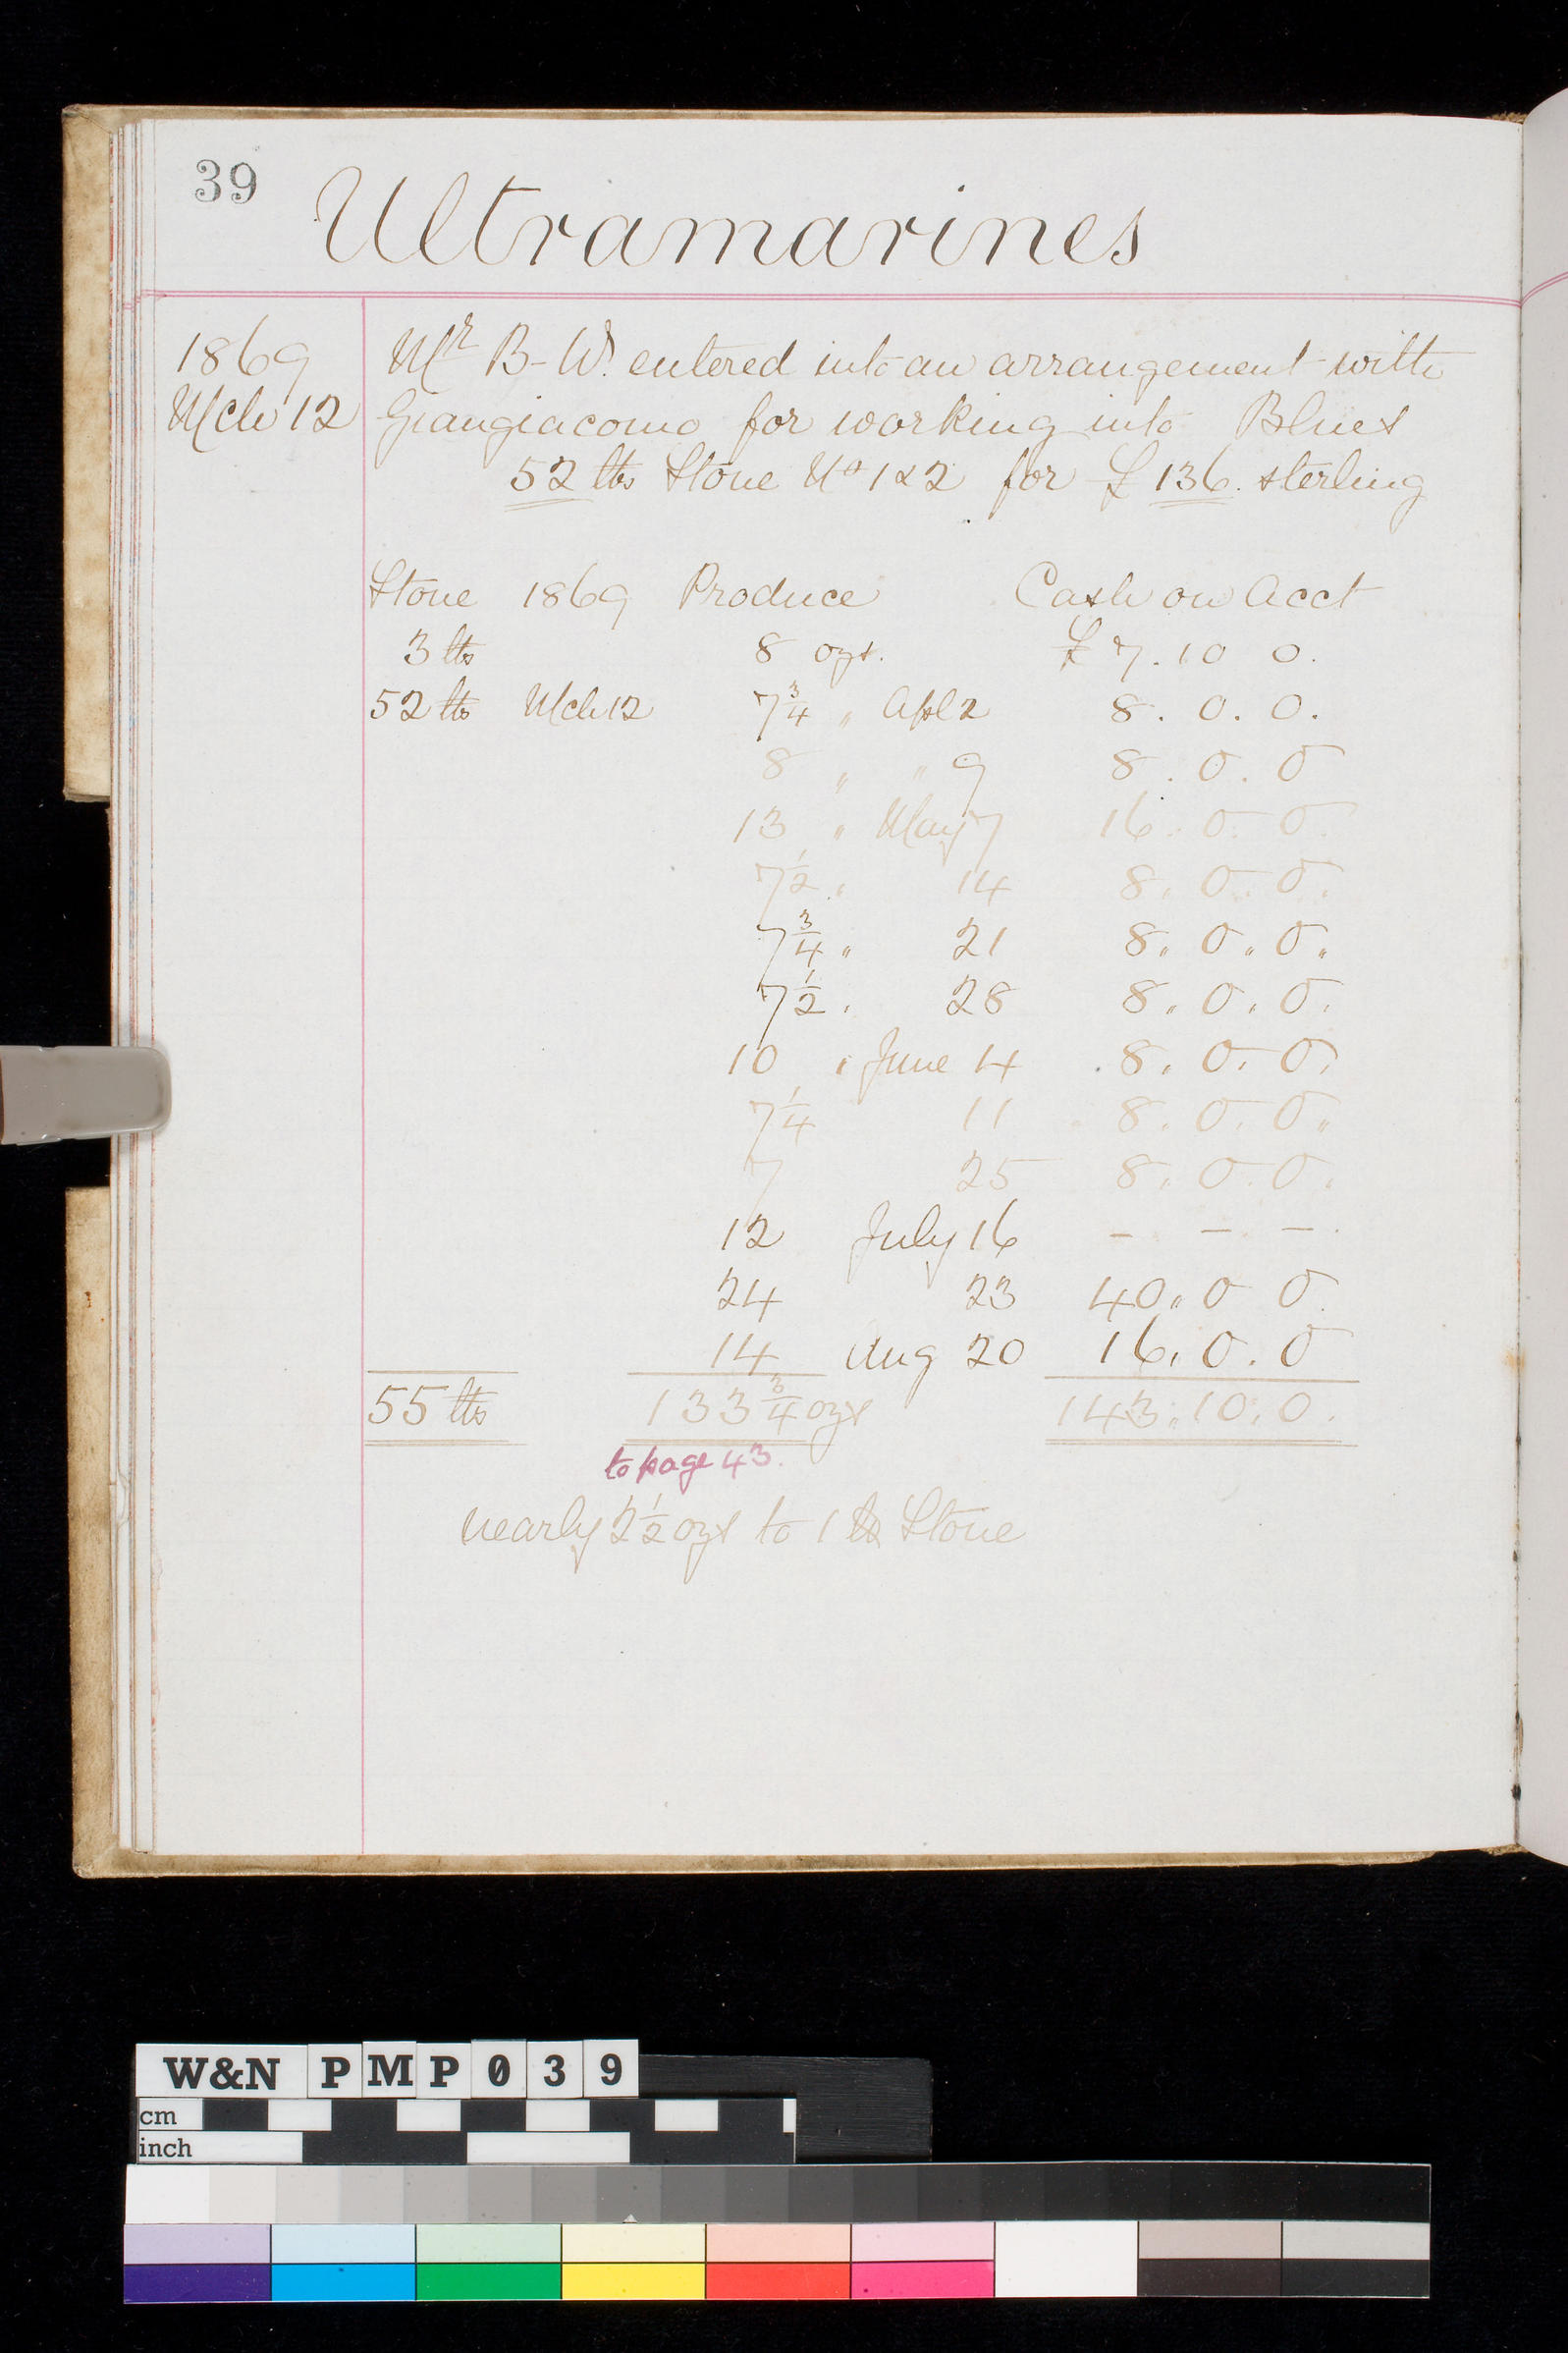 39
Ultramarines
1869
Mch 12
Mr B-W. entered into an arrangement with
Giangiacomo for working into Blues
52 lbs Stone No 1 & 2 for £136. sterling
Stone 1869 Produce Cash on Acct
3 lbs 8 ozs. £ 7. 10 0.
52 lbs Mch 12 7 3/4 " Apl 2 8. 0. 0.
8 " " 9 8. 0. 0
13 " May 7 16. 0. 0.
7 1/2 " 14 8. 0. 0.
7 3/4 " 21 8. 0. 0.
7 1/2 " 28 8. 0. 0.
10 " June 4 8. 0. 0.
7 1/4 11 8. 0. 0.
7 25 8. 0. 0.
12 July 16 - - -
24 23 40. 0 0.
14 Aug 20 16. 0. 0
55 lbs 133 3/4 ozs 143. 10. 0.
to page 43.
nearly 2 1/2 ozs to 1 lb Stone
W&N PMP039
cm
inch